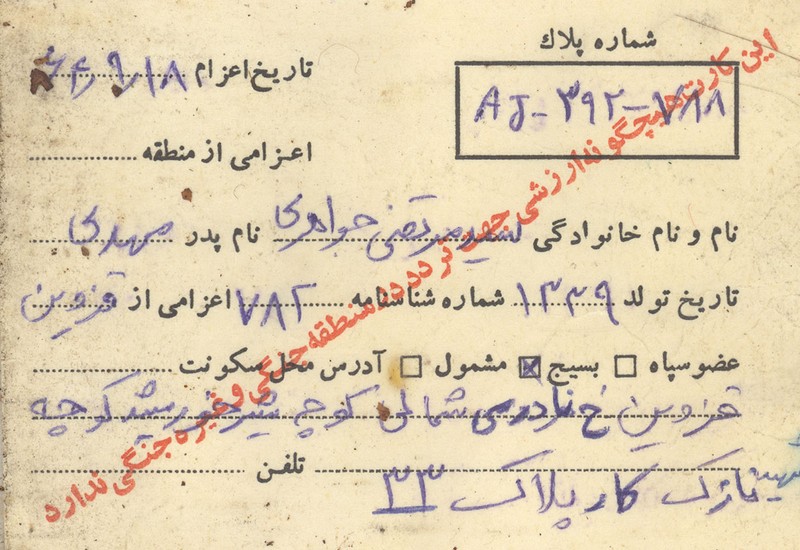 شماره پلاك
AJ-۳۹۲-۷۸۸
تاریخ اعزام ۶۴٫۹٫۱۸
اعزامی از منطقه
نام و نام خانوادگی سید مرتضی جواهری نام پدر مهدی
تاریخ تولد ۱۳۳۹ شماره شناسنامه ۷۸۲ اعزامی از قزوین
عضو سپاه بسیج مشمول آدرس محل سکونت
قزوین خ نادری شمالی کوچه شیر خورشید کوچه
شهید نازک کار پلاک ۳۳
تلفن
این کارت هیچگونه ارزشی جهت تردد در منطقه جنگی و غیره جنگی ندارد